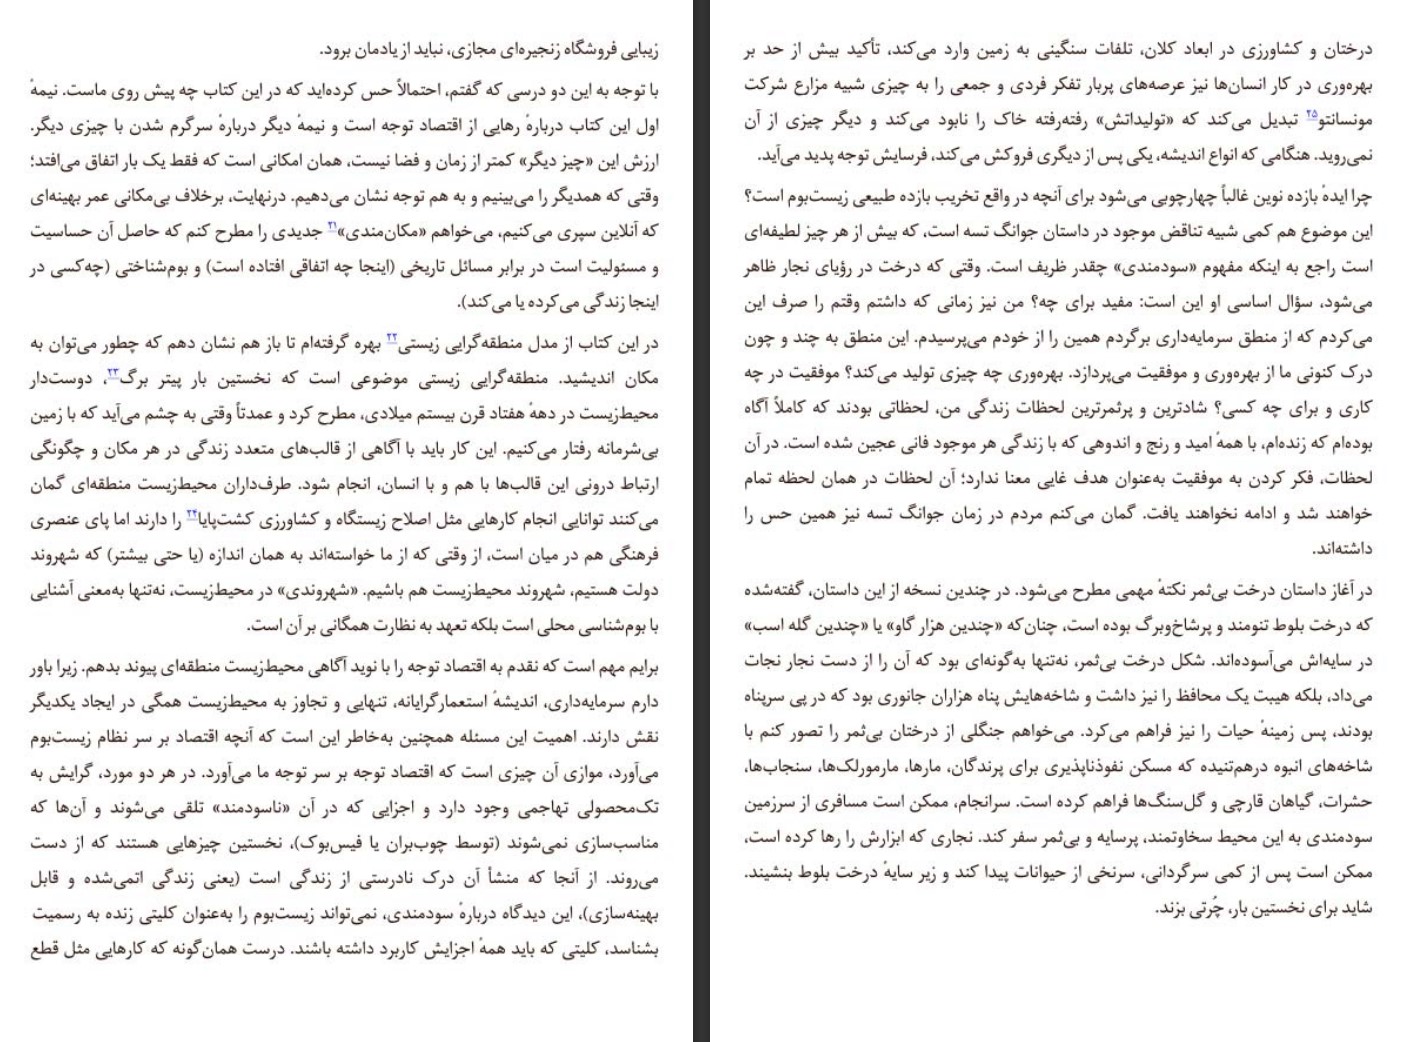 زیبایی فروشگاه زنجیره‌ای مجازی، نباید از یادمان برود.
با توجه به این دو درسی که گفتم، احتمالاً حس کرده‌اید که در این کتاب چه پیش روی ماست. نیمهٔ
اول این کتاب دربارهٔ رهایی از اقتصاد توجه است و نیمهٔ دیگر دربارهٔ سرگرم شدن با چیزی دیگر.
ارزش این «چیز دیگر» کمتر از زمان و فضا نیست، همان امکانی است که فقط یک بار اتفاق می‌افتد؛
وقتی که همدیگر را می‌بینیم و به هم توجه نشان می‌دهیم. درنهایت، برخلاف بی‌مکانی عمر بهینه‌ای
که آنلاین سپری می‌کنیم، می‌خواهم «مکان‌مندی»۲۱ جدیدی را مطرح کنم که حاصل آن حساسیت
و مسئولیت است در برابر مسائل تاریخی (اینجا چه اتفاقی افتاده است) و بوم‌شناختی (چه‌کسی در
اینجا زندگی می‌کرده یا می‌کند).
در این کتاب از مدل منطقه‌گرایی زیستی۲۲ بهره گرفته‌ام تا باز هم نشان دهم که چطور می‌توان به
مکان اندیشید. منطقه‌گرایی زیستی موضوعی است که نخستین بار پیتر برگ۲۳، دوست‌دار
محیط‌زیست در دههٔ هفتاد قرن بیستم میلادی، مطرح کرد و عمدتاً وقتی به چشم می‌آید که با زمین
بی‌شرمانه رفتار می‌کنیم. این کار باید با آگاهی از قالب‌های متعدد زندگی در هر مکان و چگونگی
ارتباط درونی این قالب‌ها با هم و با انسان، انجام شود. طرف‌داران محیط‌زیست منطقه‌ای گمان
می‌کنند توانایی انجام کارهایی مثل اصلاح زیستگاه و کشاورزی کشت‌پایا۲۴ را دارند اما پای عنصری
فرهنگی هم در میان است، از وقتی که از ما خواسته‌اند به همان اندازه (یا حتی بیشتر) که شهروند
دولت هستیم، شهروند محیط‌زیست هم باشیم. «شهروندی» در محیط‌زیست، نه‌تنها به‌معنی آشنایی
با بوم‌شناسی محلی است بلکه تعهد به نظارت همگانی بر آن است.
برایم مهم است که نقدم به اقتصاد توجه را با نوید آگاهی محیط‌زیست منطقه‌ای پیوند بدهم. زیرا باور
دارم سرمایه‌داری، اندیشهٔ استعمارگرایانه، تنهایی و تجاوز به محیط‌زیست همگی در ایجاد یکدیگر
نقش دارند. اهمیت این مسئله همچنین به‌خاطر این است که آنچه اقتصاد بر سر نظام زیست‌بوم
می‌آورد، موازی آن چیزی است که اقتصاد توجه بر سر توجه ما می‌آورد. در هر دو مورد، گرایش به
تک‌محصولی تهاجمی وجود دارد و اجزایی که در آن «ناسودمند» تلقی می‌شوند و آن‌ها که
مناسب‌سازی نمی‌شوند (توسط چوب‌بران یا فیس‌بوک)، نخستین چیزهایی هستند که از دست
می‌روند. از آنجا که منشأ آن درک نادرستی از زندگی است (یعنی زندگی اتمی‌شده و قابل
بهینه‌سازی)، این دیدگاه دربارهٔ سودمندی، نمی‌تواند زیست‌بوم را به‌عنوان کلیتی زنده به رسمیت
بشناسد، کلیتی که باید همهٔ اجزایش کاربرد داشته باشند. درست همان‌گونه که کارهایی مثل قطع
درختان و کشاورزی در ابعاد کلان، تلفات سنگینی به زمین وارد می‌کند، تأکید بیش از حد بر
بهره‌وری در کار انسان‌ها نیز عرصه‌های پربار تفکر فردی و جمعی را به چیزی شبیه مزارع شرکت
مونسانتو۲۵ تبدیل می‌کند که «تولیداتش» رفته‌رفته خاک را نابود می‌کند و دیگر چیزی از آن
نمی‌روید. هنگامی که انواع اندیشه، یکی پس از دیگری فروکش می‌کند، فرسایش توجه پدید می‌آید.
چرا ایدهٔ بازده نوین غالباً چهارچوبی می‌شود برای آنچه در واقع تخریب بازده طبیعی زیست‌بوم است؟
این موضوع هم کمی شبیه تناقض موجود در داستان جوانگ تسه است، که بیش از هر چیز لطیفه‌ای
است راجع به اینکه مفهوم «سودمندی» چقدر ظریف است. وقتی که درخت در رؤیای نجار ظاهر
می‌شود، سؤال اساسی او این است: مفید برای چه؟ من نیز زمانی که داشتم وقتم را صرف این
می‌کردم که از منطق سرمایه‌داری برگردم همین را از خودم می‌پرسیدم. این منطق به چند و چون
درک کنونی ما از بهره‌وری و موفقیت می‌پردازد. بهره‌وری چه چیزی تولید می‌کند؟ موفقیت در چه
کاری و برای چه کسی؟ شادترین و پرثمرترین لحظات زندگی من، لحظاتی بودند که کاملاً آگاه
بوده‌ام که زنده‌ام، با همهٔ امید و رنج و اندوهی که با زندگی هر موجود فانی عجین شده است. در آن
لحظات، فکر کردن به موفقیت به‌عنوان هدف غایی معنا ندارد؛ آن لحظات در همان لحظه تمام
خواهند شد و ادامه نخواهند یافت. گمان می‌کنم مردم در زمان جوانگ تسه نیز همین حس را
داشته‌اند.
در آغاز داستان درخت بی‌ثمر نکتهٔ مهمی مطرح می‌شود. در چندین نسخه از این داستان، گفته‌شده
که درخت بلوط تنومند و پرشاخ‌وبرگ بوده است، چنان‌که «چندین هزار گاو» یا «چندین گله اسب»
در سایه‌اش می‌آسوده‌اند. شکل درخت بی‌ثمر، نه‌تنها به‌گونه‌ای بود که آن را از دست نجار نجات
می‌داد، بلکه هیبت یک محافظ را نیز داشت و شاخه‌هایش پناه هزاران جانوری بود که در پی سرپناه
بودند، پس زمینهٔ حیات را نیز فراهم می‌کرد. می‌خواهم جنگلی از درختان بی‌ثمر را تصور کنم با
شاخه‌های انبوه درهم‌تنیده که مسکن نفوذناپذیری برای پرندگان، مارها، مارمورلک‌ها، سنجاب‌ها،
حشرات، گیاهان قارچی و گل‌سنگ‌ها فراهم کرده است. سرانجام، ممکن است مسافری از سرزمین
سودمندی به این محیط سخاوتمند، پرسایه و بی‌ثمر سفر کند. نجاری که ابزارش را رها کرده است،
ممکن است پس از کمی سرگردانی، سرنخی از حیوانات پیدا کند و زیر سایهٔ درخت بلوط بنشیند.
شاید برای نخستین بار، چُرتی بزند.